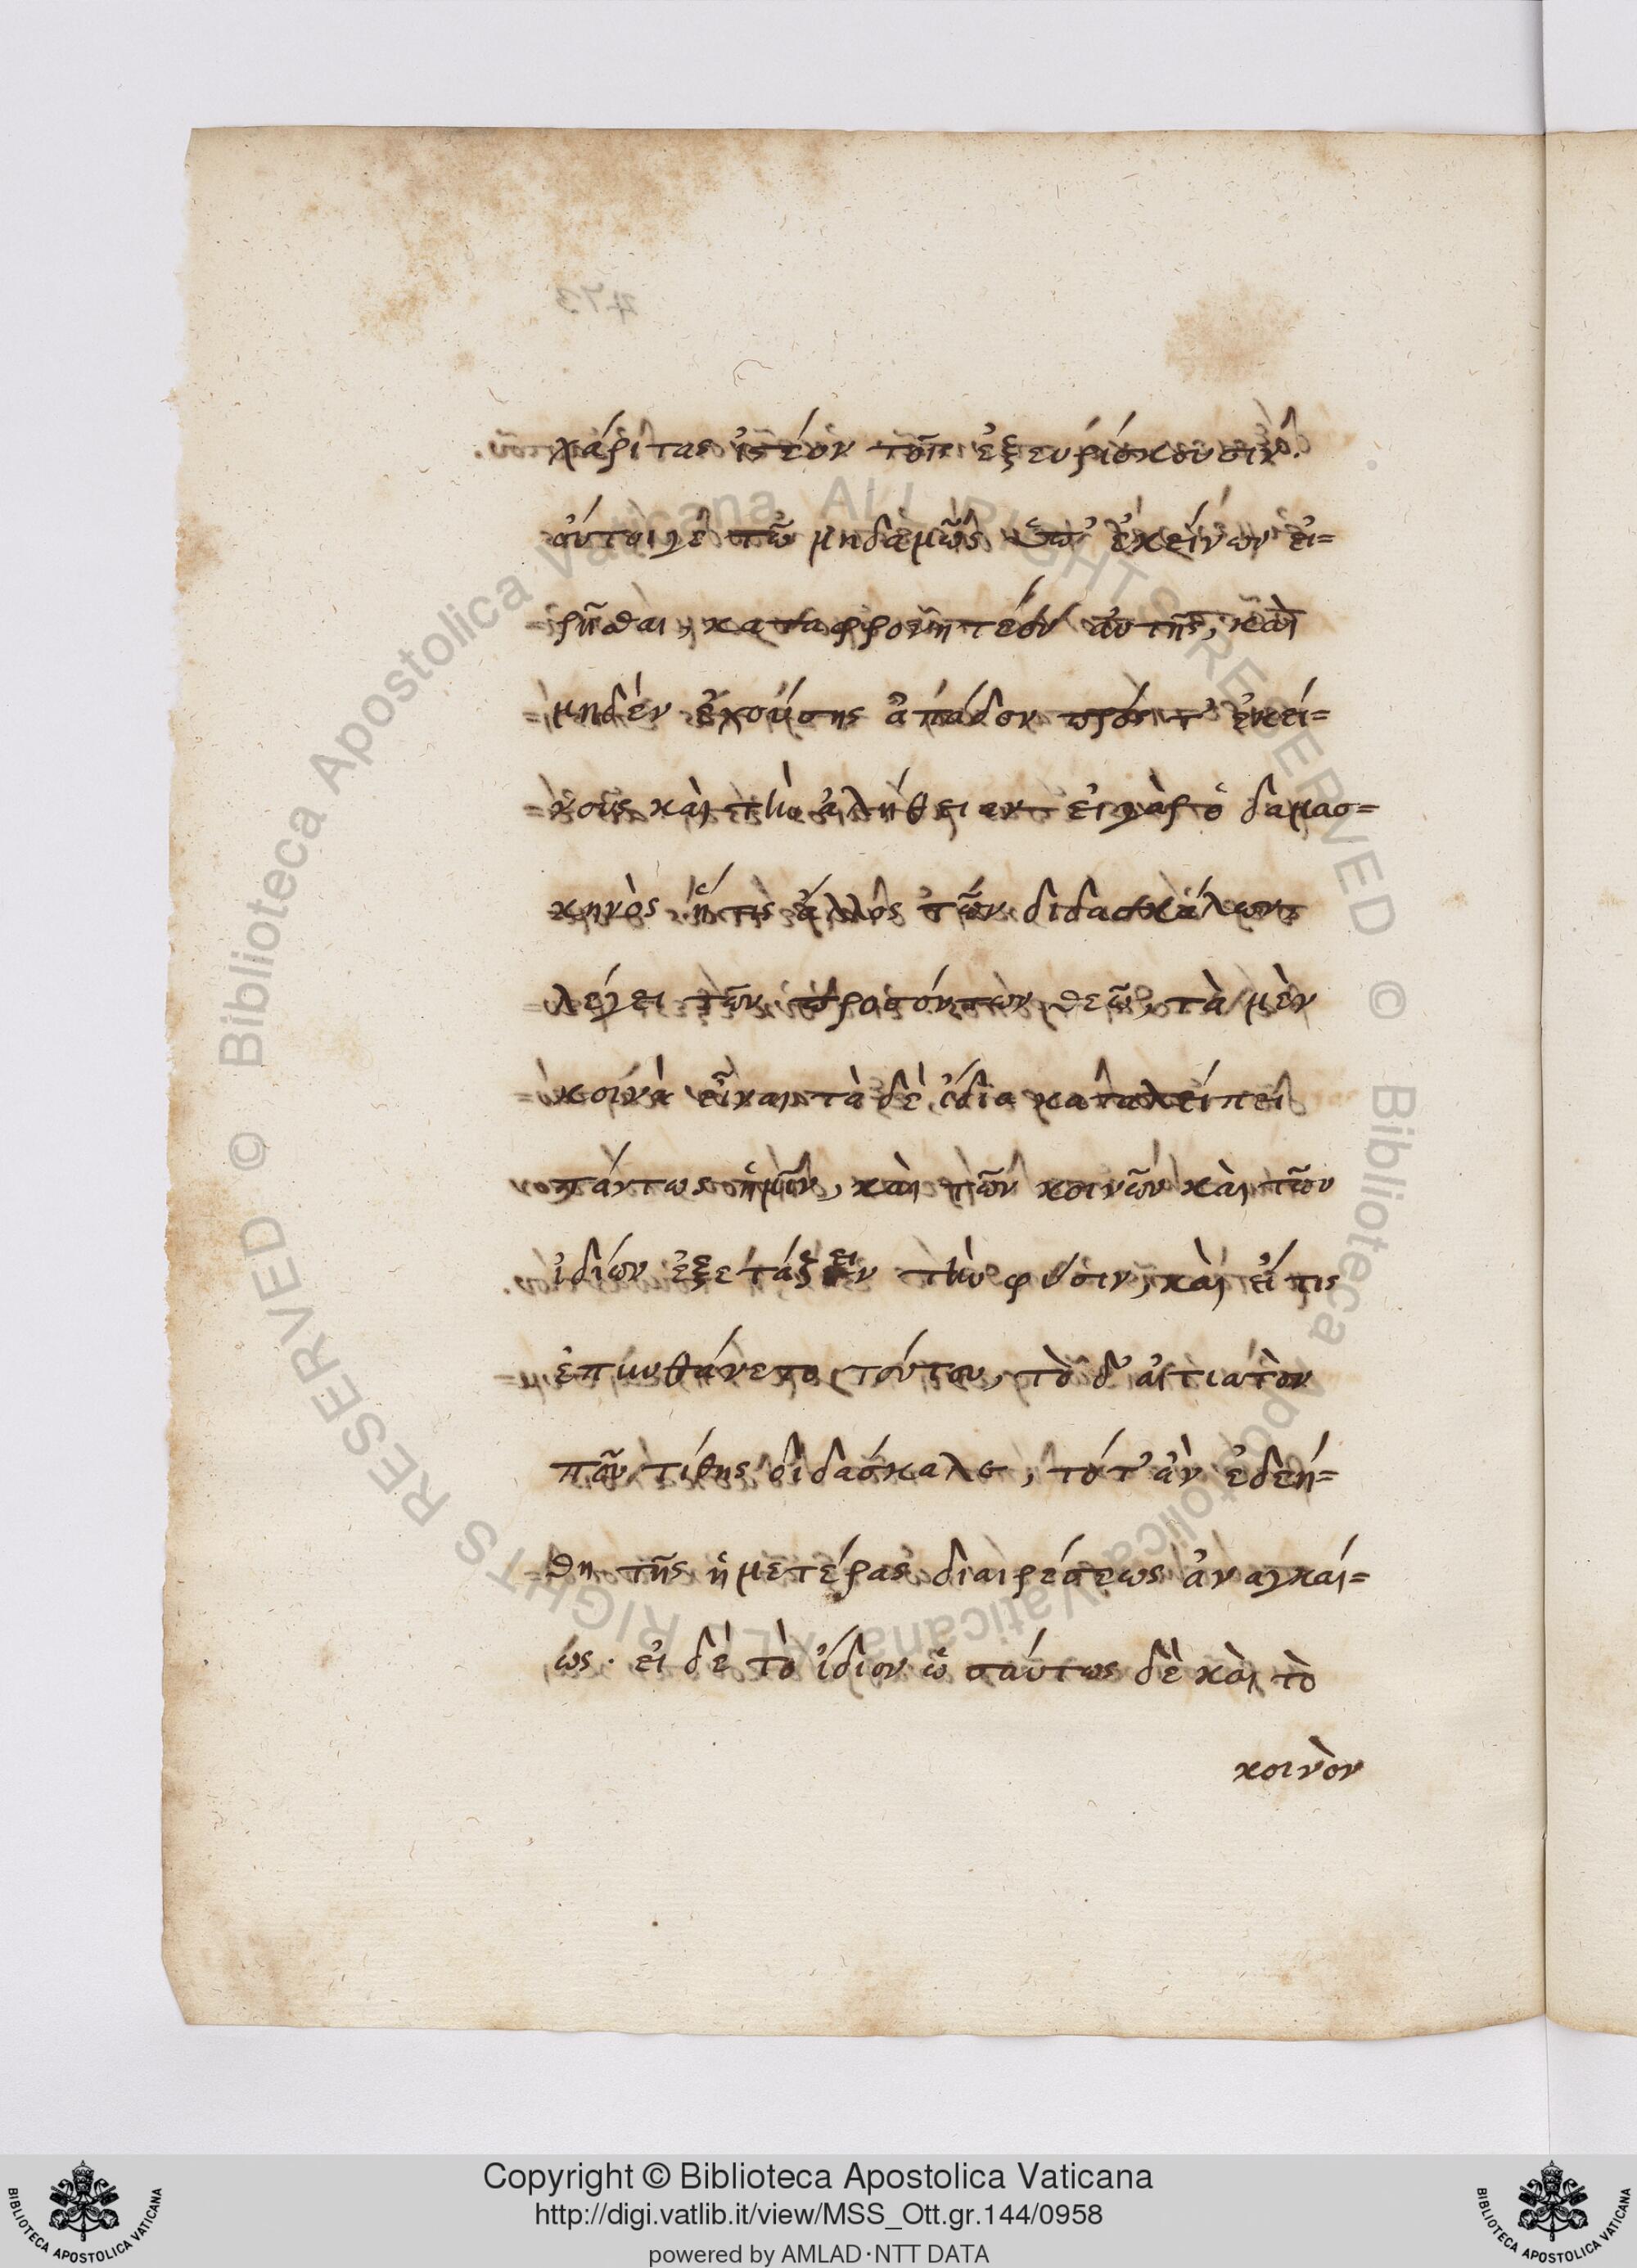 473
χάριτας ἰστέον τοῖς ἐξευρίσκουσιν.
οὔτοι γὲ τῶ μηδαμῶς ὑπ' ἐκείνων εἰ=
ρῆσθαι, καταφρονητέον αὐτῆς, καὶ
μηδὲν ἐχούσης ἀπάδον πρός τ' ἐκεί=
νους καὶ τὴν ἀλήθειαν εἰ γὰρ ὁ δαμασ=
κηνὸς ἤ τις ἄλλος τῶν διδασκάλων
λέγει τῶν προσόντων θεῶ, τὰ μὲν
κοινὰ εἶναι τὰ δὲ ἴδια καταλείπει
πάντως ἡμῖν, καὶ τῶν κοινῶν καὶ τῶν
ἰδίων ἐξετάζειν τὴν φύσιν, καὶ εἴ τις
ἐπυνθάνετο τούτου, τὸ δ' αἰτιατὸν
ποῦ τίθης διδάσκαλε, τότ' ἂν ἐδεή=
θη τῆς ἡμετέρας διαιρέσεως ἀναγκαί=
ως. εἰ δὲ τὸ ἴδιον ὡσαύτως δὲ καὶ τὸ
κοινὸν
© Biblioteca Apostolica Vaticana ALL RIGHTS RESERVED
© Biblioteca Apostolica Vaticana ALL RIGHTS RESERVED
Copyright © Biblioteca Apostolica Vaticana
http://digi.vatlib.it/view/MSS_Ott.gr.144/0958
powered by AMLAD·NTT DATA
BIBLIOTECA APOSTOLICA VATICANA
BIBLIOTECA APOSTOLICA VATICANA